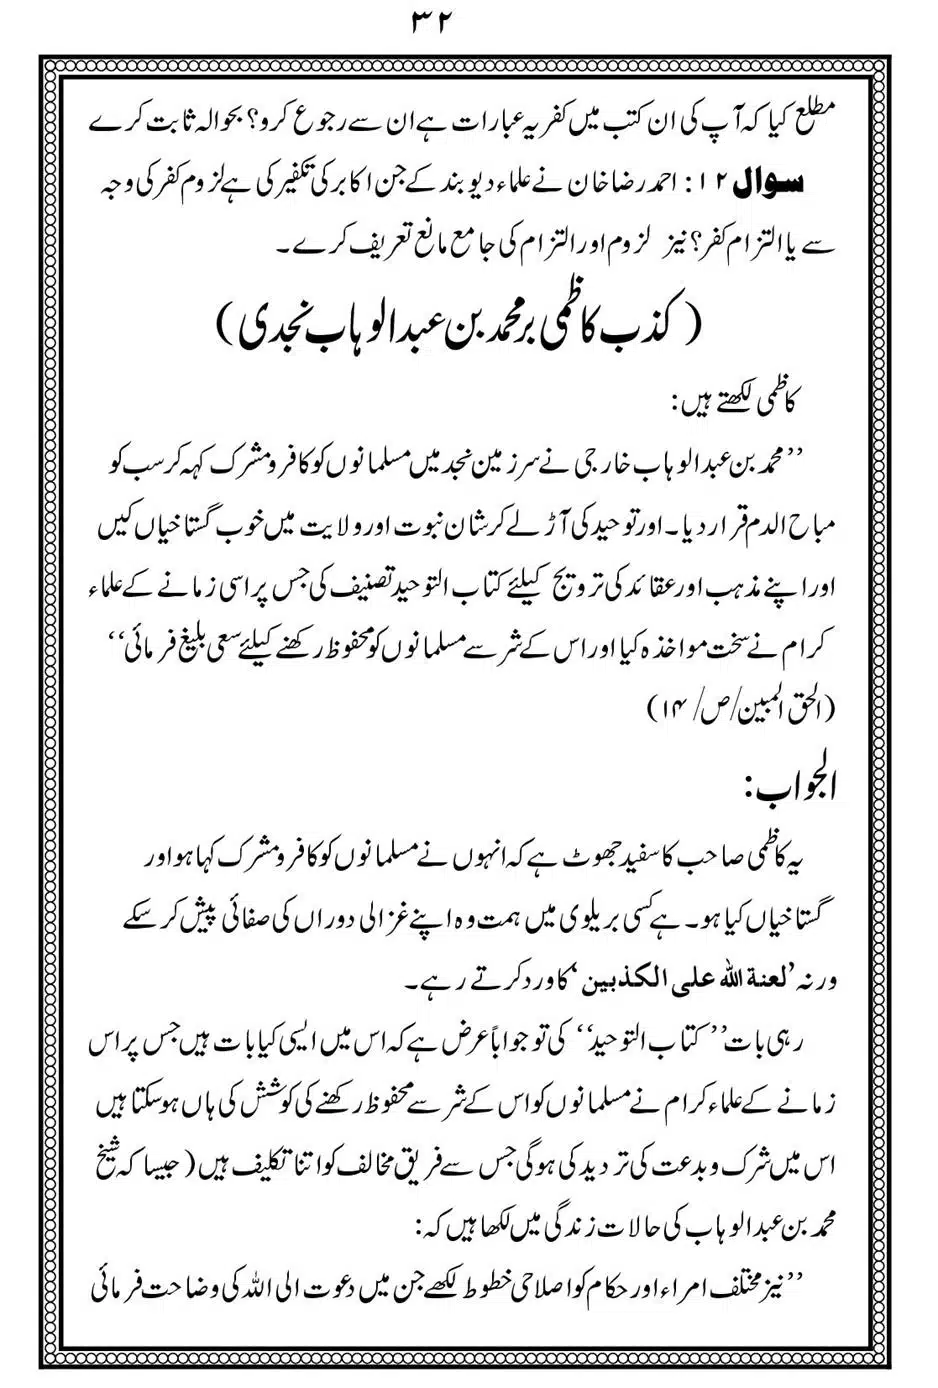 ۳۲
مطلع کیا کہ آپ کی ان کتب میں کفریہ عبارات ہے ان سے رجوع کرو؟ بحوالہ ثابت کرے
سوال ۱۲: احمد رضا خان نے علماء دیوبند کے جن اکابر کی تکفیر کی ہے لزوم کفر کی وجہ
سے یا التزام کفر؟ نیز لزوم اور التزام کی جامع مانع تعریف کرے۔
(کذب کاظمی بر محمد بن عبدالوہاب نجدی)
کاظمی لکھتے ہیں:
’’محمد بن عبدالوہاب خارجی نے سرزمین نجد میں مسلمانوں کو کافر و مشرک کہہ کر سب کو
مباح الدم قرار دیا۔ اور توحید کی آڑ لے کر شان نبوت اور ولایت میں خوب گستاخیاں کیں
اور اپنے مذہب اور عقائد کی ترویج کیلئے کتاب التوحید تصنیف کی جس پر اسی زمانے کے علماء
کرام نے سخت مواخذہ کیا اور اس کے شر سے مسلمانوں کو محفوظ رکھنے کیلئے سعی بلیغ فرمائی‘‘
(الحق المبین/ص/۱۴)
الجواب:
یہ کاظمی صاحب کا سفید جھوٹ ہے کہ انہوں نے مسلمانوں کو کافر و مشرک کہا ہو اور
گستاخیاں کیا ہو۔ ہے کسی بریلوی میں ہمت وہ اپنے غزالی دوراں کی صفائی پیش کر سکے
ورنہ ’لعنة الله على الكذبين‘ کا ورد کرتے رہے۔
رہی بات ’’کتاب التوحید‘‘ کی تو جواباً عرض ہے کہ اس میں ایسی کیا بات ہیں جس پر اس
زمانے کے علماء کرام نے مسلمانوں کو اس کے شر سے محفوظ رکھنے کی کوشش کی ہاں ہو سکتا ہیں
اس میں شرک و بدعت کی تردید کی ہوگی جس سے فریق مخالف کو اتنا تکلیف ہیں (جیسا کہ شیخ
محمد بن عبدالوہاب کی حالات زندگی میں لکھا ہیں کہ:
’’نیز مختلف امراء اور حکام کو اصلاحی خطوط لکھے جن میں دعوت الی اللہ کی وضاحت فرمائی